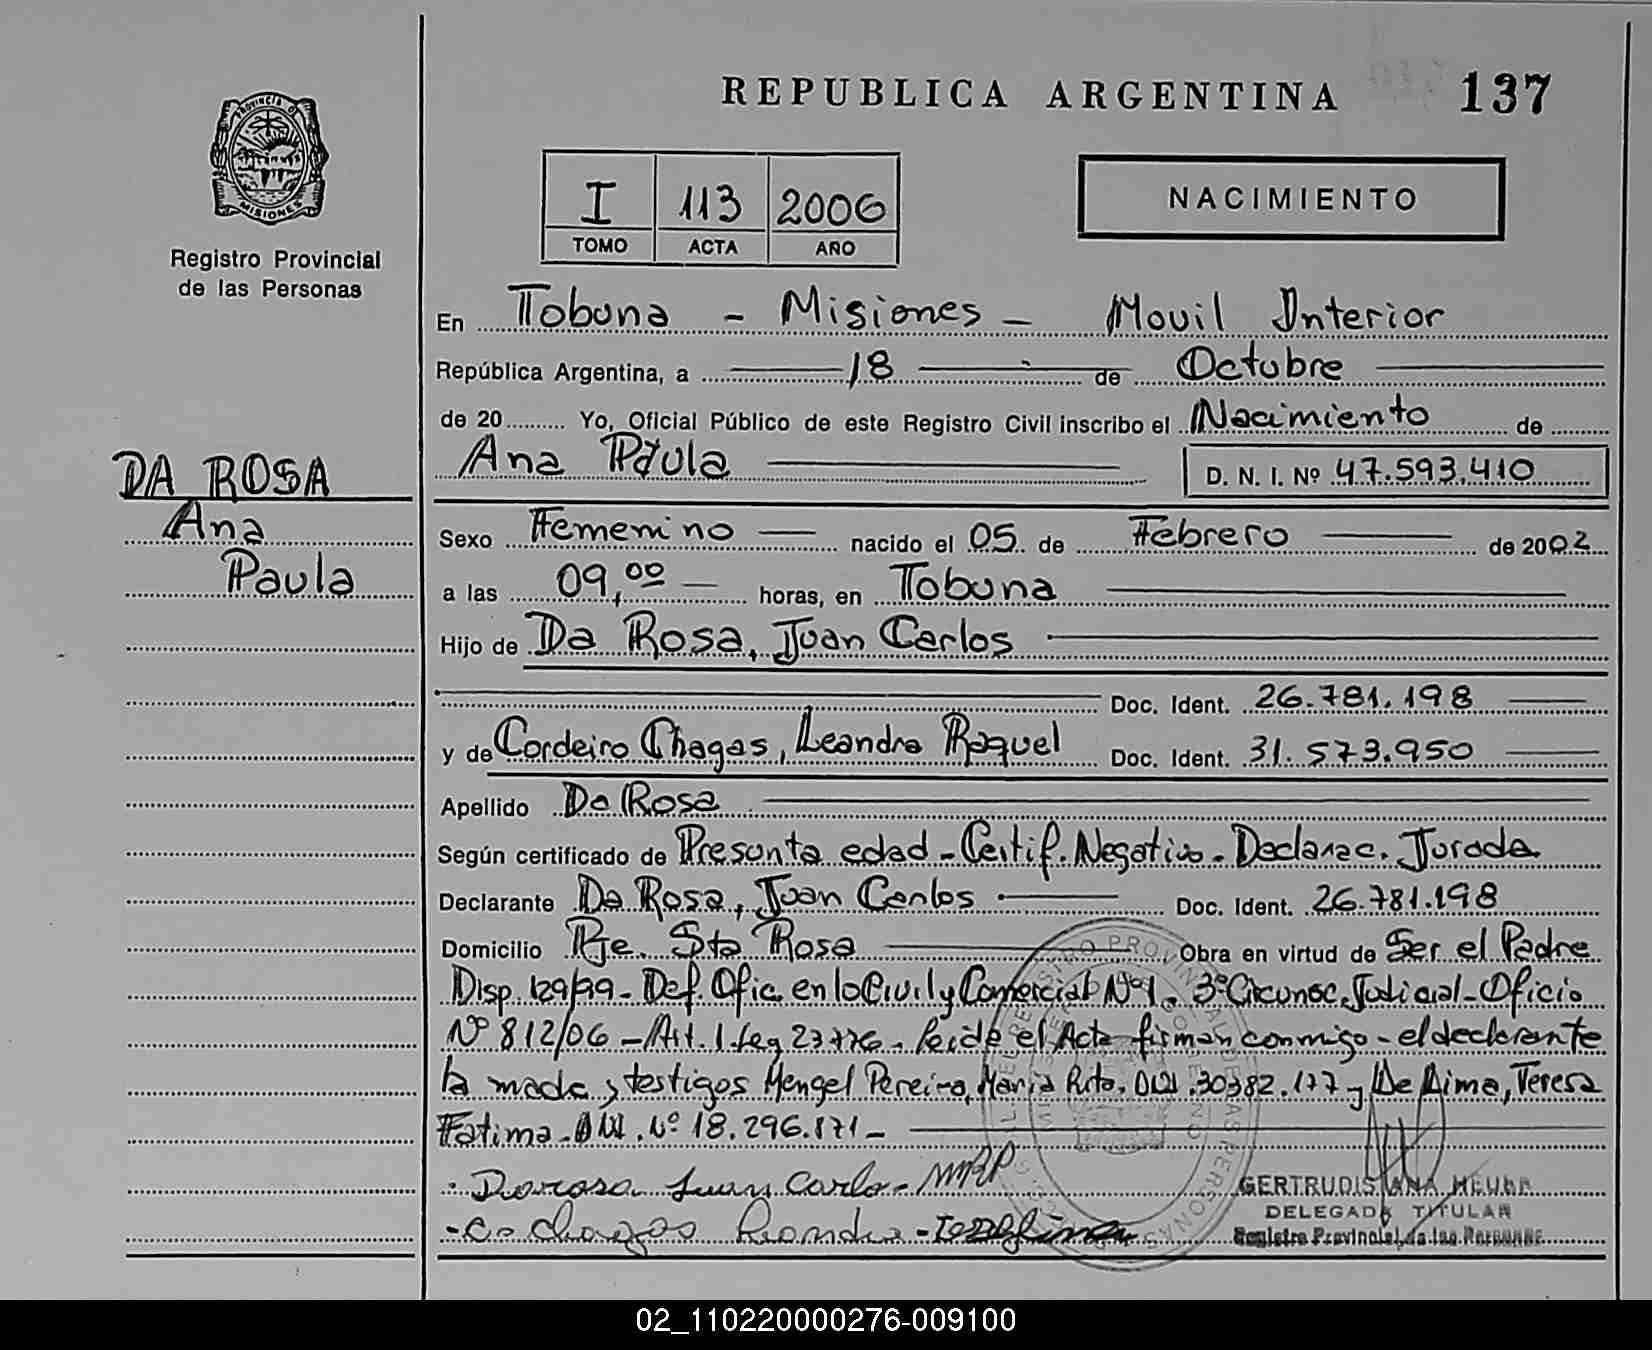 REPUBLICA ARGENTINA 137
PROVINCIA DE MISIONES
Registro Provincial
de las Personas
I 113 2006
TOMO ACTA AÑO
NACIMIENTO
En Tobuna - Misiones - Movil Interior
República Argentina, a 18 de Octubre
de 20 Yo, Oficial Público de este Registro Civil inscribo el Nacimiento de
Ana Paula D. N. I. Nº 47.593.410
DA ROSA
Ana
Paula
Sexo Femenino nacido el 05 de Febrero de 2002
a las 09,00 horas, en Tobuna
Hijo de Da Rosa, Juan Carlos
Doc. Ident. 26.781.198
y de Cordeiro Chagas, Leandra Raquel Doc. Ident. 31.573.950
Apellido Da Rosa
Según certificado de Presunta edad - Certif. Negativo - Declarac. Jurada
Declarante Da Rosa, Juan Carlos Doc. Ident. 26.781.198
Domicilio Pje. Sta Rosa Obra en virtud de Ser el Padre
Disp. 129/99 - Def. Ofic. en lo Civil y Comercial Nº 1. 3º Circunsc. Judicial - Oficio
Nº 812/06 - Art. 1. Ley 23776 - Leida el Acta firman conmigo - el declarante
la madre y testigos Mengel Pereira, Maria Rita. DNI. 30382.177 y De Lima, Teresa
Fatima - DNI. Nº 18.296.871 -
Darosa Juan Carlo - MMRP
Chagas Leandra -
GERTRUDIS ANA
DELEGADA TITULAR
Registro Provincial de las Personas
02_110220000276-009100